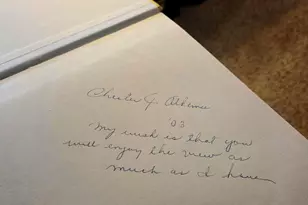 Chester J.
'03
"My wish is that you
will enjoy the view as
much as I have